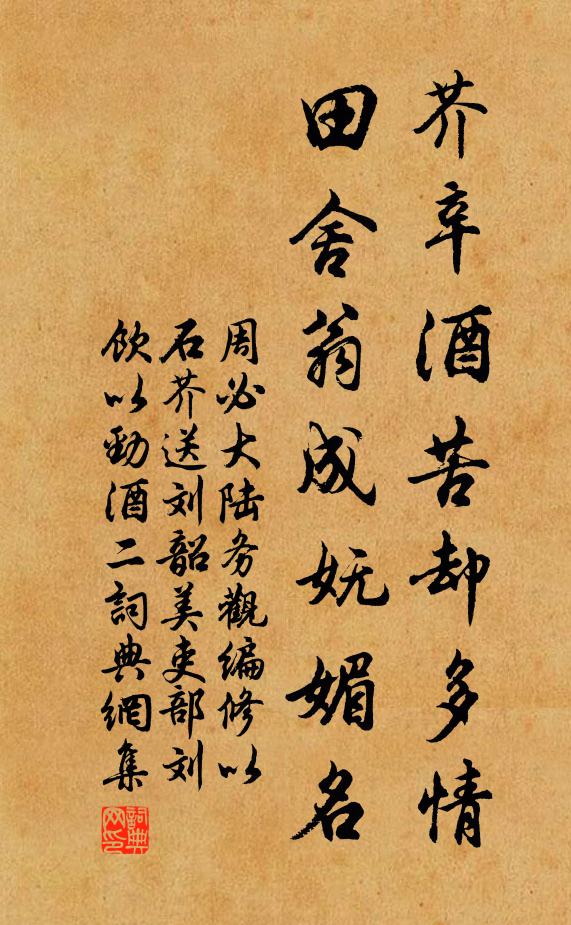 芥辛酒苦却多情
田舍翁成妩媚名
周必大陆务觀编修以
石芥送刘韶美吏部刘
饮以勁酒二詞典網集
詞典網印